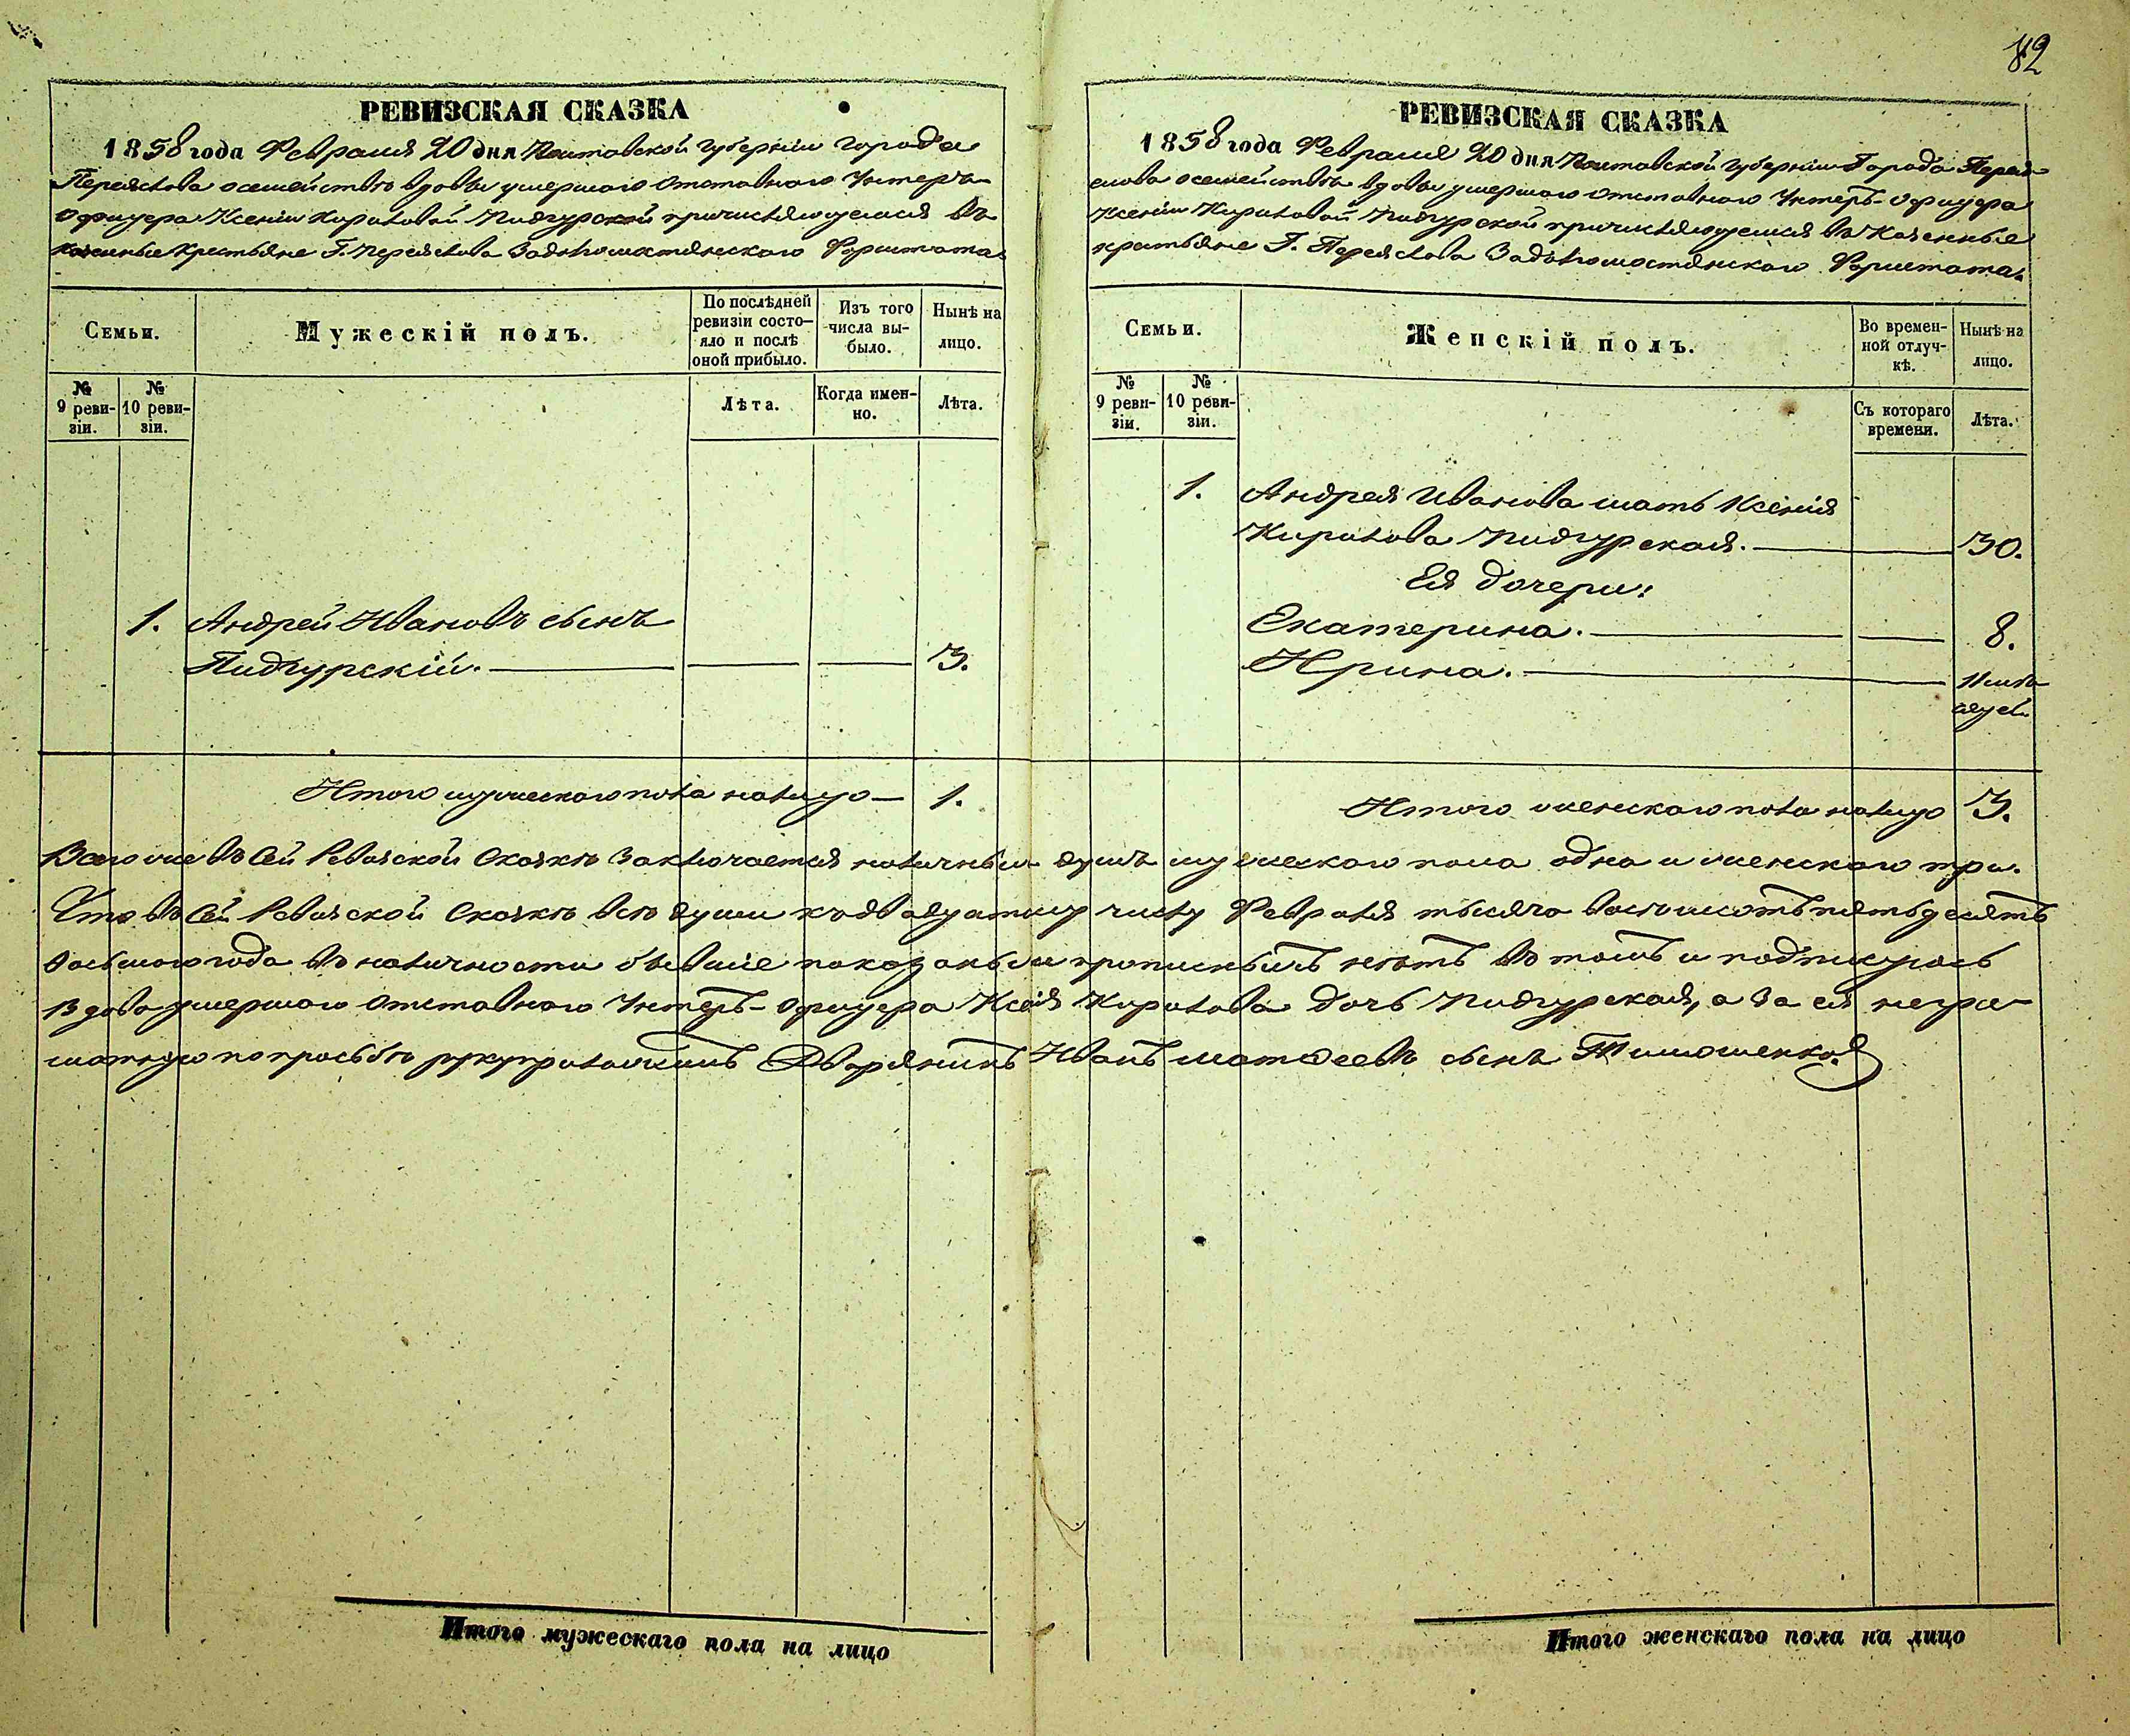 82
РЕВИЗСКАЯ СКАЗКА
1858 года Февраля 20 дня Полтавской Губерніи города
Переяслова о семействѣ вдовы умершаго Отставного Унтеръ-
Офицера Ксеніи Кириловой Пидгурской причисляющемся въ
казенные крестьяне Г. Переяслова Задолгомостянского Форштата.
Семьи.
Мужескій полъ.
По послѣдней ревизіи состо-
яло и послѣ
оной прибыло.
Изъ того
числа вы-
было.
Нынѣ на
лицо.
№
9 реви-
зіи.
№
10 реви-
зіи.
Лѣта.
Когда имен-
но.
Лѣта.
1. Андрей Ивановъ сынъ
Пидгурскій. 3.
Итого мужескаго пола налицо — 1.
РЕВИЗСКАЯ СКАЗКА
1858 года Февраля 20 дня Полтавской Губерніи Города Перея-
слова о семействѣ вдовы умершаго Отставного Унтеръ-Офицера
Ксеніи Кириловой Пидгурской причисляющемся въ Казенные
крестьяне Г. Переяслова Задолгомостянского Форштата.
Семьи.
Женскій полъ.
Во времен-
ной отлуч-
кѣ.
Нынѣ на
лицо.
№
9 реви-
зіи.
№
10 реви-
зіи.
Съ котораго
времени.
Лѣта.
1. Андрея Иванова мать Ксенія
Кирилова Пидгурская. 30.
Ея дочери:
Екатерина. 8.
Ирина. 11 мѣ-
сяцев.
Итого женскаго пола налицо 3.
Всего же въ Сей Ревизской Сказкѣ заключается наличныхъ душъ мужескаго пола одна и женскаго три.
Что въ Сей Ревизской Сказкѣ всѣ души къ двадцатому числу Февраля тысяча восемьсотъ пятьдесятъ
восьмого года въ наличности бывшіе показаны и прописныхъ нѣтъ въ томъ и подписуюсь
Вдова умершаго Отставного Унтеръ-Офицера Ксенія Кирилова дочь Пидгурская, а за ея негра-
мотную по прозьбѣ рукуприложилъ Дворянинъ Иванъ Матвеевъ сынъ Тимошенко.
Итого мужескаго пола на лицо
Итого женскаго пола на лицо